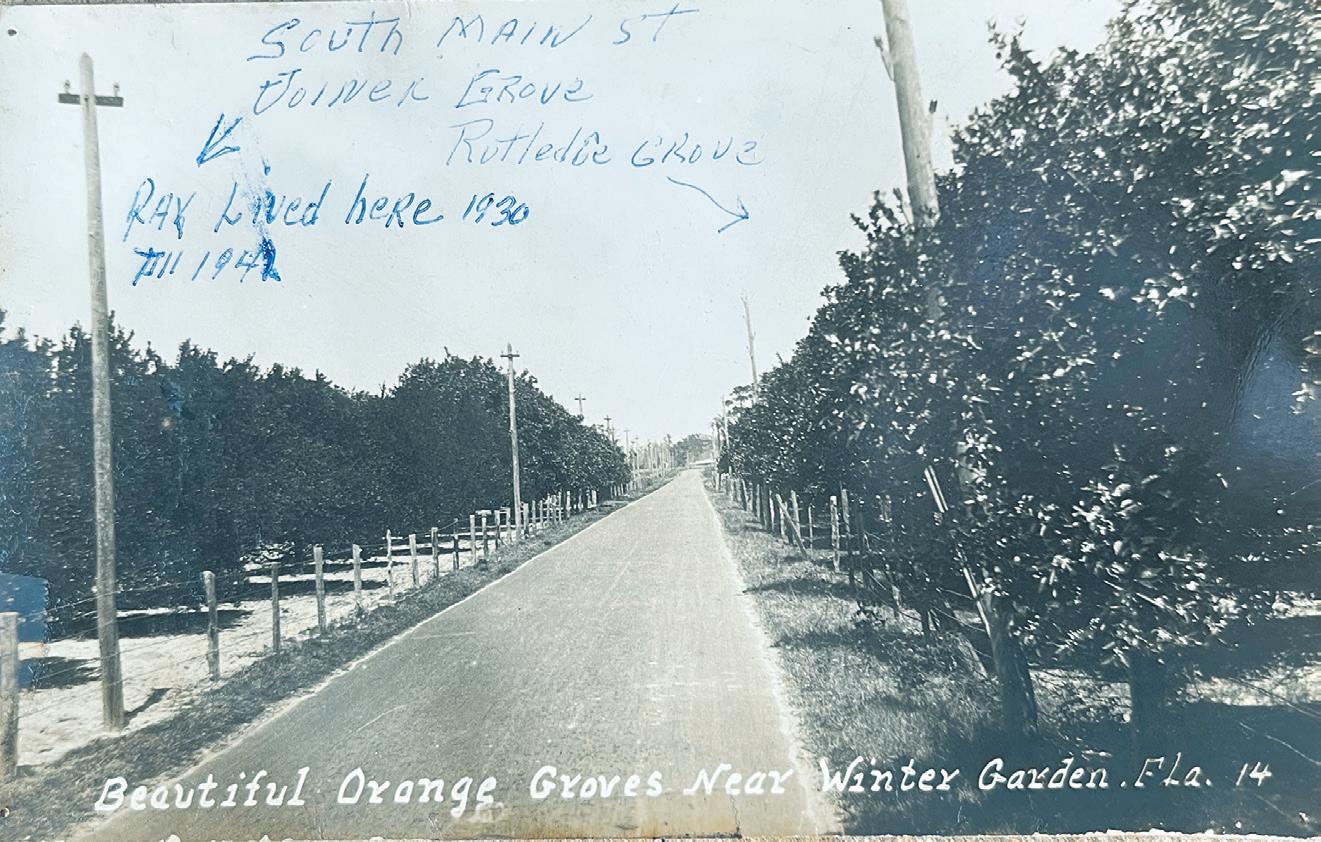 South Main St
Joiner Grove
Rutledge Grove
Ray Lived here 1930
Till 1942
Beautiful Orange Groves Near Winter Garden. Fla. 14